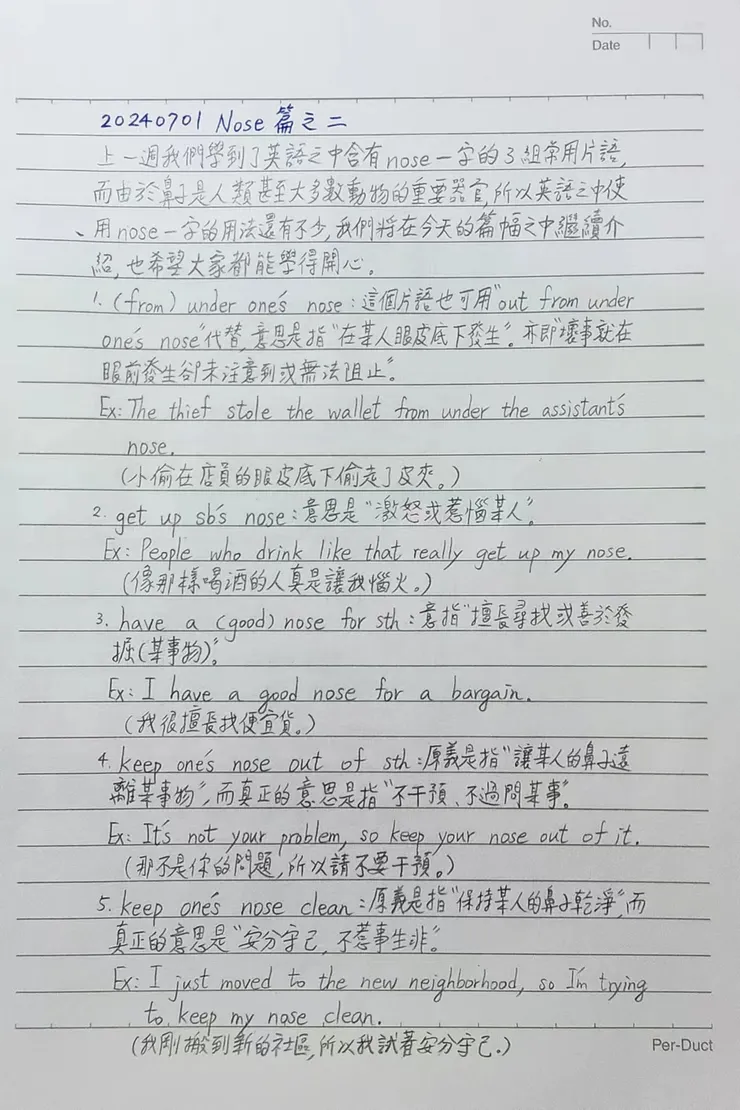 No.
Date
20240701 Nose 篇之二
上一週我們學到了英語之中含有nose一字的3組常用片語,
而由於鼻子是人類甚至大多數動物的重要器官,所以英語之中使
、用nose一字的用法還有不少,我們將在今天的篇幅之中繼續介
紹,也希望大家都能學得開心。
1. (from) under one's nose:這個片語也可用"out from under
one's nose"代替,意思是指"在某人眼皮底下發生"。亦即"壞事就在
眼前發生卻未注意到或無法阻止"。
Ex: The thief stole the wallet from under the assistant's
nose.
(小偷在店員的眼皮底下偷走了皮夾。)
2. get up sb's nose:意思是"激怒或惹惱某人"。
Ex: People who drink like that really get up my nose.
(像那樣喝酒的人真是讓我惱火。)
3. have a (good) nose for sth:意指"擅長尋找或善於發
掘(某事物)"。
Ex: I have a good nose for a bargain.
(我很擅長找便宜貨。)
4. keep one's nose out of sth:原義是指"讓某人的鼻子遠
離某事物",而真正的意思是指"不干預、不過問某事"。
Ex: It's not your problem, so keep your nose out of it.
(那不是你的問題,所以請不要干預。)
5. keep one's nose clean:原義是指"保持某人的鼻子乾淨",而
真正的意思是"安分守己,不惹事生非"。
Ex: I just moved to the new neighborhood, so I'm trying
to keep my nose clean.
(我剛搬到新的社區,所以我試著安分守己.)
Per-Duct